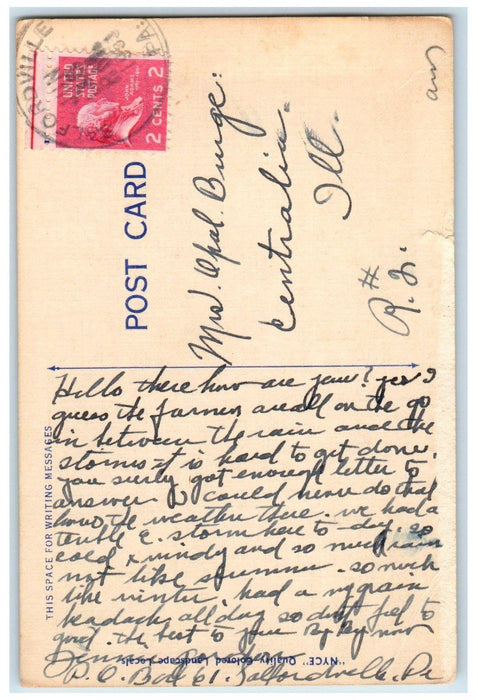 SALFORDVILLE PA.
UNITED
STATES
POSTAGE
JOHN
ADAMS
2 CENTS 2
ans
POST CARD
Mrs. Opal. Burge:
Centralia.
Ill.
R. #
THIS SPACE FOR WRITING MESSAGES
Hello there how are you? yes I
guess the farmers are all on the go
in between the rain and the
storms it is hard to get done.
you surly got enough letter to
answer I could never do that
how, the weather there. we had a
terrible E. storm here to-day. so
cold & windy and so much rain
not like summer. so much
like winter. had a migrain
headache all day so dont feel to
good. the best to you By By now
Jennie
P. O. Box 61. Salfordville. Pa
"NYCE" Quality Colored Landscape Locals